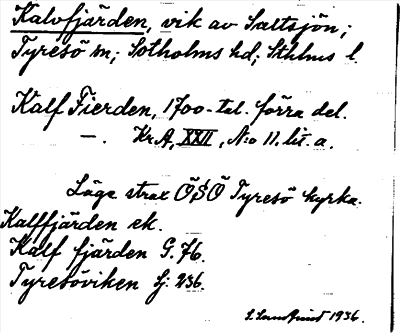 Kalvfjärden, vik av Saltsjön;
Tyresö sn; Sotholms hd; Sthlms l.
Kalf Fierden, 1700-tal. förra del.
—. Kr.A, XXII, N:o 11. lit. a.
Läge strax ÖSÖ Tyresö kyrka.
Kalffjärden ek.
Kalf fjärden G. 76.
Tyresöviken Gj: 236.
1936.